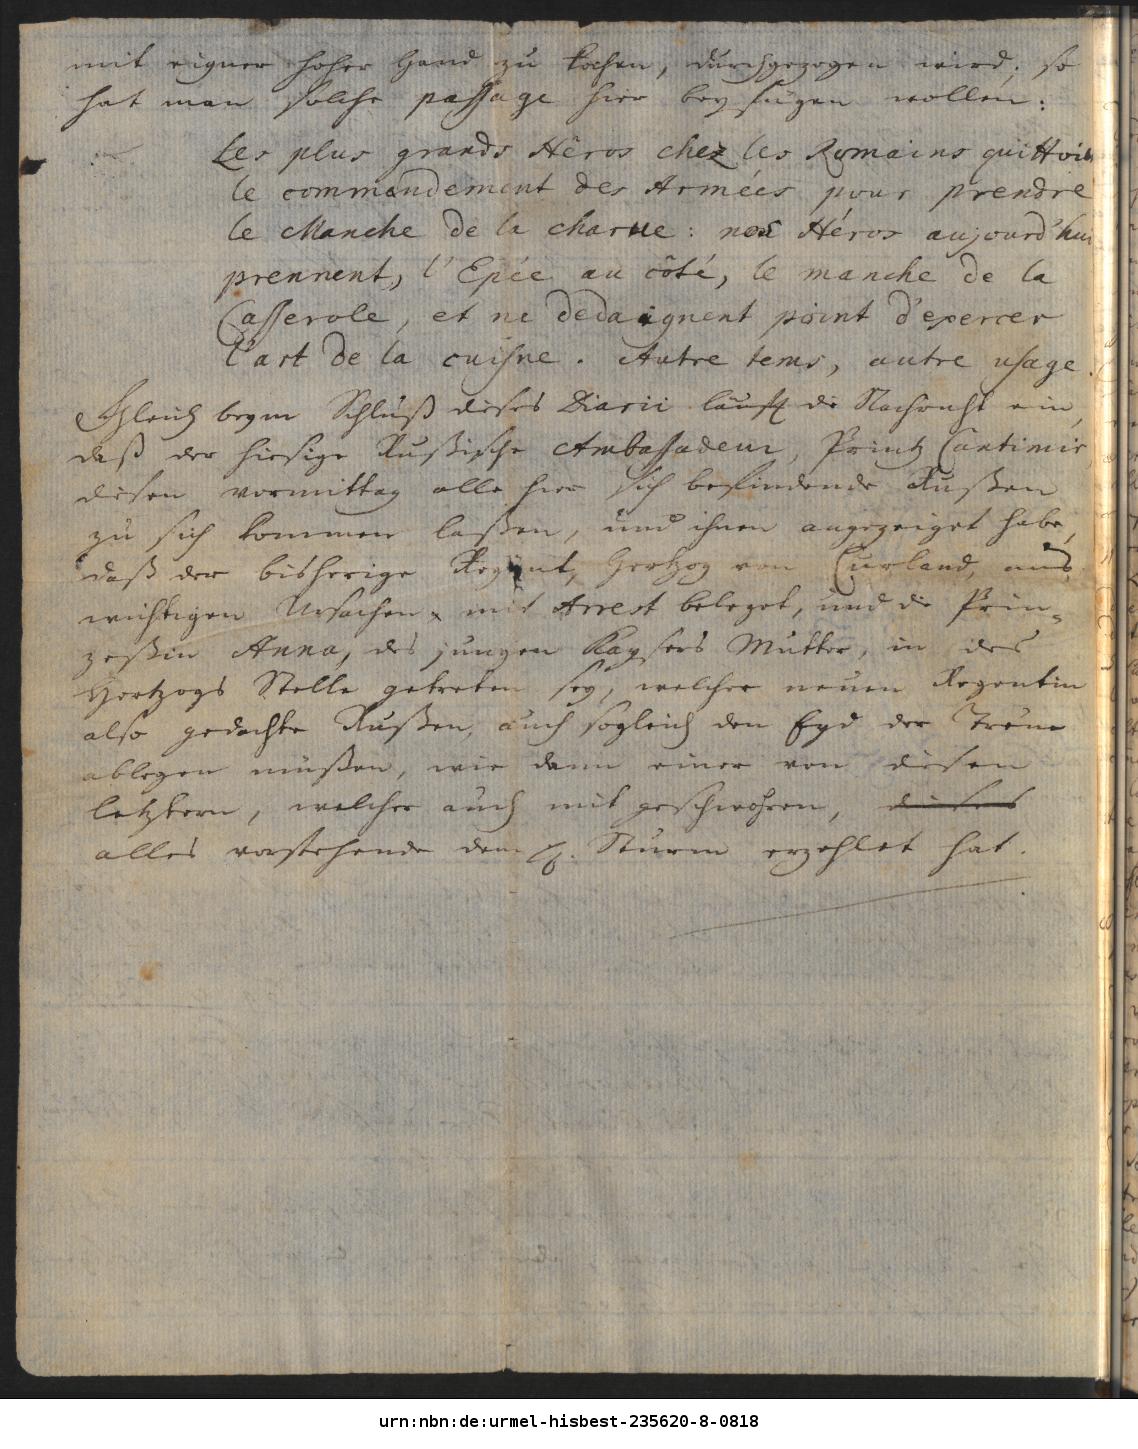 mit eigner hoher Hand zu kochen, durchgezogen wird; so
hat man solche passage hier beyfügen wollen:
Les plus grands Héros chez les Romains quittoient
le commandement des Armées pour prendre
le Manche de la charue: nos Héros aujourd'hui
prennent, l'Epée au côté, le manche de la
Casserole, et ne dedaignent point d'exercer
l'art de la cuisne. Autre tems, autre usage.
Gleich beym Schluß dieses Diarii läufft die Nachricht ein,
daß der hiesige Rußische Ambassadeur, Printz Cantimir,
diesen vormittag alle hier sich befindende Rußen
zu sich kommen laßen, und ihnen angezeiget habe,
daß der bisherige Regent, Hertzog von Curland, aus
wichtigen Ursachen mit Arrest beleget, und die Prin-
zeßin Anna, des jungen Kaysers Mutter, in des
Hertzogs Stelle getreten sey, welcher neuen Regentin
also gedachte Rußen, auch sogleich den Eyd der Treue
ablegen müßen, wie dann einer von diesen
letztern, welcher auch mit geschwohren, dieses
alles vorstehende dem H. Sturm erzehlet hat.
urn:nbn:de:urmel-hisbest-235620-8-0818